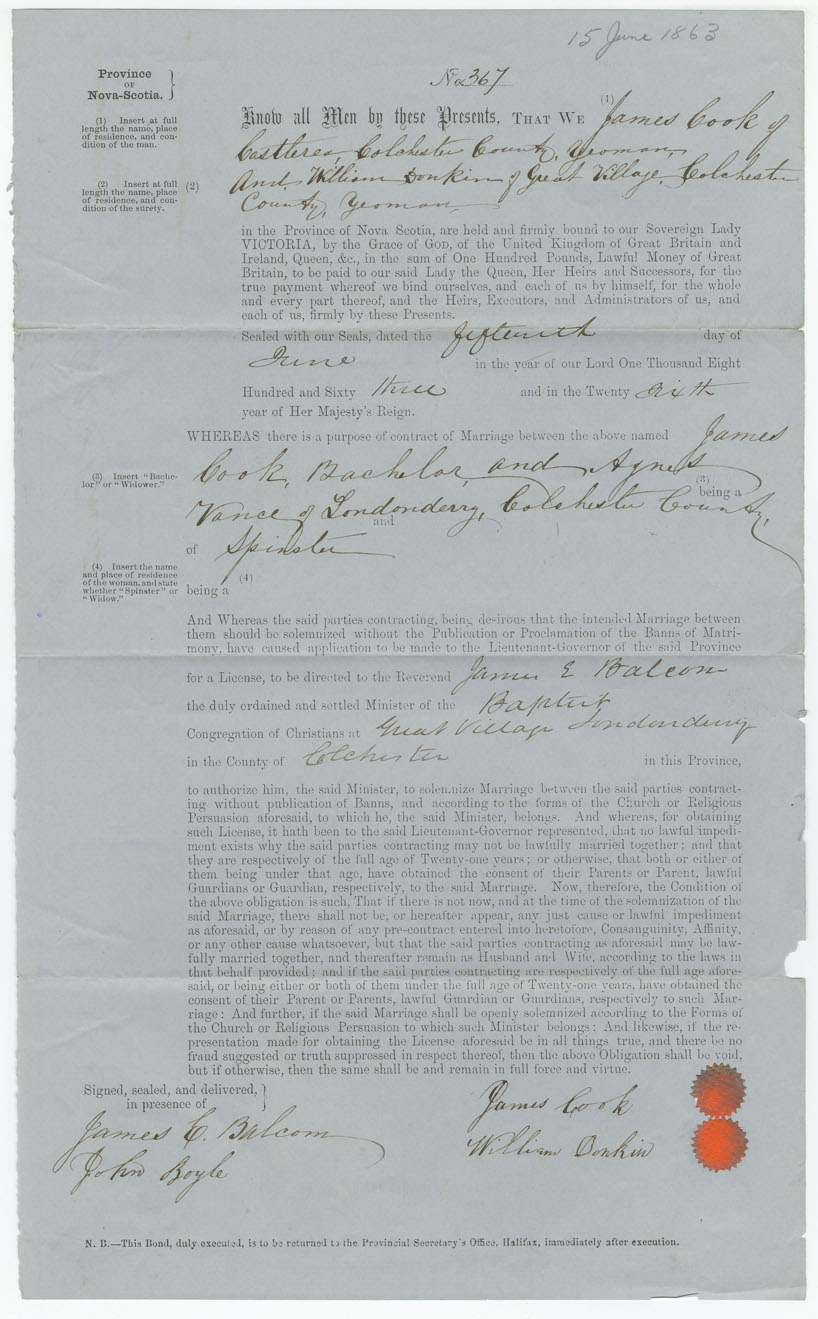 15 June 1863
Province
OF
Nova-Scotia.
No 367
(1) Insert at full
length the name, place
of residence, and con-
dition of the man.
(1)
Know all Men by these Presents, THAT WE James Cook of
Castlerea, Colchester County, Yeoman,
(2) Insert at full
length the name, place
of residence, and con-
dition of the surety.
(2) And, William Donkin of Great Village, Colchester
County, Yeoman
in the Province of Nova Scotia, are held and firmly bound to our Sovereign Lady
VICTORIA, by the Grace of GOD, of the United Kingdom of Great Britain and
Ireland, Queen, &c., in the sum of One Hundred Pounds, Lawful Money of Great
Britain, to be paid to our said Lady the Queen, Her Heirs and Successors, for the
true payment whereof we bind ourselves, and each of us by himself, for the whole
and every part thereof, and the Heirs, Executors, and Administrators of us, and
each of us, firmly by these Presents.
Sealed with our Seals, dated the fifteenth day of
June in the year of our Lord One Thousand Eight
Hundred and Sixty three and in the Twenty sixth
year of Her Majesty's Reign.
WHEREAS there is a purpose of contract of Marriage between the above named James
(3) Insert "Bache-
lor" or "Widower."
Cook, Bachelor, and Agnes
(3)
being a
Vance of Londonderry, Colchester County,
and
of Spinster
(4) Insert the name
and place of residence
of the woman, and state
whether "Spinster" or
"Widow."
(4)
being a
And Whereas the said parties contracting, being desirous that the intended Marriage between
them should be solemnized without the Publication or Proclamation of the Banns of Matri-
mony, have caused application to be made to the Lieutenant-Governor of the said Province
for a License, to be directed to the Reverend James E Balcom
the duly ordained and settled Minister of the Baptist
Congregation of Christians at Great Village Londonderry
in the County of Colchester in this Province,
to authorize him, the said Minister, to solemnize Marriage between the said parties contract-
ing without publication of Banns, and according to the forms of the Church or Religious
Persuasion aforesaid, to which he, the said Minister, belongs. And whereas, for obtaining
such License, it hath been to the said Lieutenant-Governor represented, that no lawful impedi-
ment exists why the said parties contracting may not be lawfully married together; and that
they are respectively of the full age of Twenty-one years; or otherwise, that both or either of
them being under that age, have obtained the consent of their Parents or Parent, lawful
Guardians or Guardian, respectively, to the said Marriage. Now, therefore, the Condition of
the above obligation is such, That if there is not now, and at the time of the solemnization of the
said Marriage, there shall not be, or hereafter appear, any just cause or lawful impediment
as aforesaid, or by reason of any pre-contract entered into heretofore, Consanguinity, Affinity,
or any other cause whatsoever, but that the said parties contracting as aforesaid may be law-
fully married together, and thereafter remain as Husband and Wife, according to the laws in
that behalf provided; and if the said parties contracting are respectively of the full age afore-
said, or being either or both of them under the full age of Twenty-one years, have obtained the
consent of their Parent or Parents, lawful Guardian or Guardians, respectively to such Mar-
riage: And further, if the said Marriage shall be openly solemnized according to the Forms of
the Church or Religious Persuasion to which such Minister belongs: And likewise, if the re-
presentation made for obtaining the License aforesaid be in all things true, and there be no
fraud suggested or truth suppressed in respect thereof, then the above Obligation shall be void,
but if otherwise, then the same shall be and remain in full force and virtue.
Signed, sealed, and delivered,
in presence of
James Cook
James E. Balcom
William Donkin
John Boyle
N. B.—This Bond, duly executed, is to be returned to the Provincial Secretary's Office, Halifax, immediately after execution.